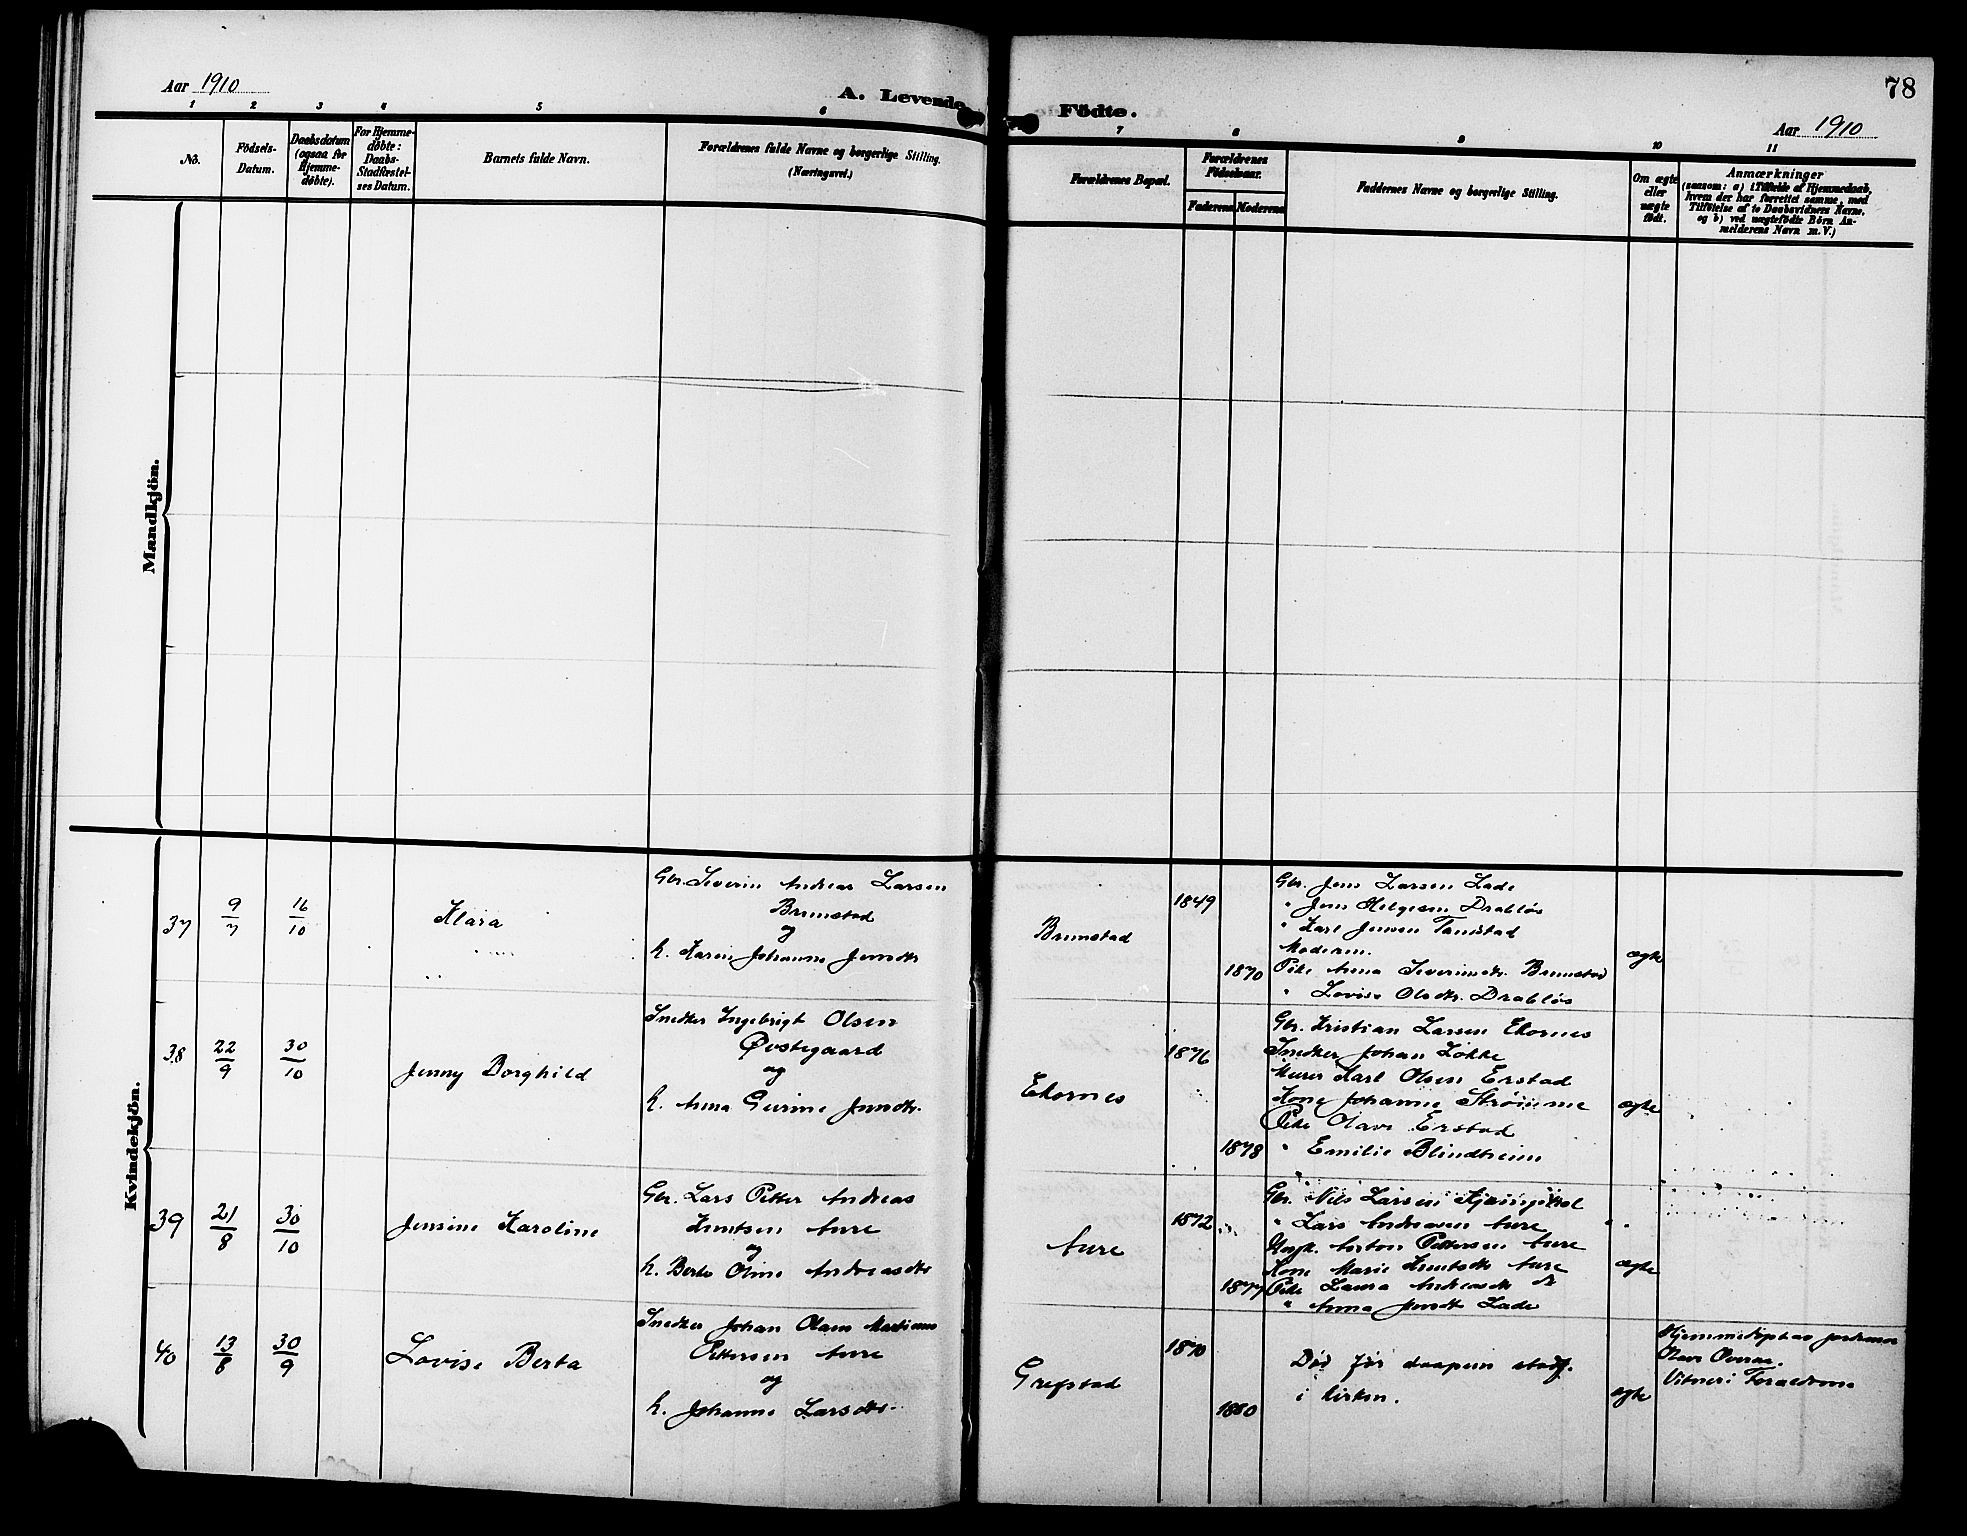 Aar 1910
A. Levende
1 2 3 4 5 6
No.
Födsels-
Datum.
Daabsdatum
(ogsaa for
Hjemme-
døbte).
For Hjemme-
døbte:
Daabs-
Stadfæstel-
ses Datum.
Barnets fulde Navn.
Forældrenes fulde Navne og borgerlige Stilling.
(Næringsvei.)
Mandkjön.
Kvindekjön.
37
9/7
16/10
Klara
Gbr. Severin Andreas Larsen
Brunstad
og
h. Karen Johanne Jensdtr
38
22/9
30/10
Jenny Borghild
Snedker Ingebrigt Olsen
Øvstegaard
og
h. Anna Gurine Jensdtr.
39
21/8
30/10
Jensine Karoline
Gbr. Lars Petter Andreas
Knutsen Aure
og
h. Berte Oline Andreasdtr
40
13/8
30/9
Lovise Berta
Snedker Johan Olaus Martinus
Pettersen Aure
og
h. Johanne Larsdtr.
78
Födte.
Aar 1910
7 8 9 10 11
Forældrenes Bopæl.
Forældrenes
Födselsaar.
Faderens Moderens
Faddernes Navne og borgerlige Stilling.
Om ægte
eller
uægte
födt.
Anmærkninger
(saasom: a) i Tilfælde af Hjemmedaab,
hvem der har forrettet samme, med
Tilföielse af to Daabsvidners Navne,
og b) ved uægtefödte Börn An-
melderens Navn m. V.)
Brunstad
1849
1870
Gbr. Jens Larsen Lade
" Jens Helgesen Drabløs
" Karl Jensen Tandstad
Moderen.
Pike Anna Severinsdtr. Brunstad
" Lovise Olsdtr. Drabløs
ægte
Ekornes
1876
1878
Gbr. Kristian Larsen Ekornes
Snedker Johan Løkke
Murer Karl Olsen Erstad
Kone Johanne Strømme
Pike Olave Erstad
" Emilie Blindheim
ægte
Aure
1872
1877
Gbr. Nils Larsen
" Lars Andreassen Aure
Anton Pettersen Aure
Kone Marie Knutsdtr Aure
Pike Laura Andreasdtr
" Anna Jensdtr Lade
ægte
Grepstad
1870
1880
Død før daapen stadf.
i kirken.
ægte
Hjemmedøpt av jordmor
Olave Overaa.
Vitner: Foraeldrene